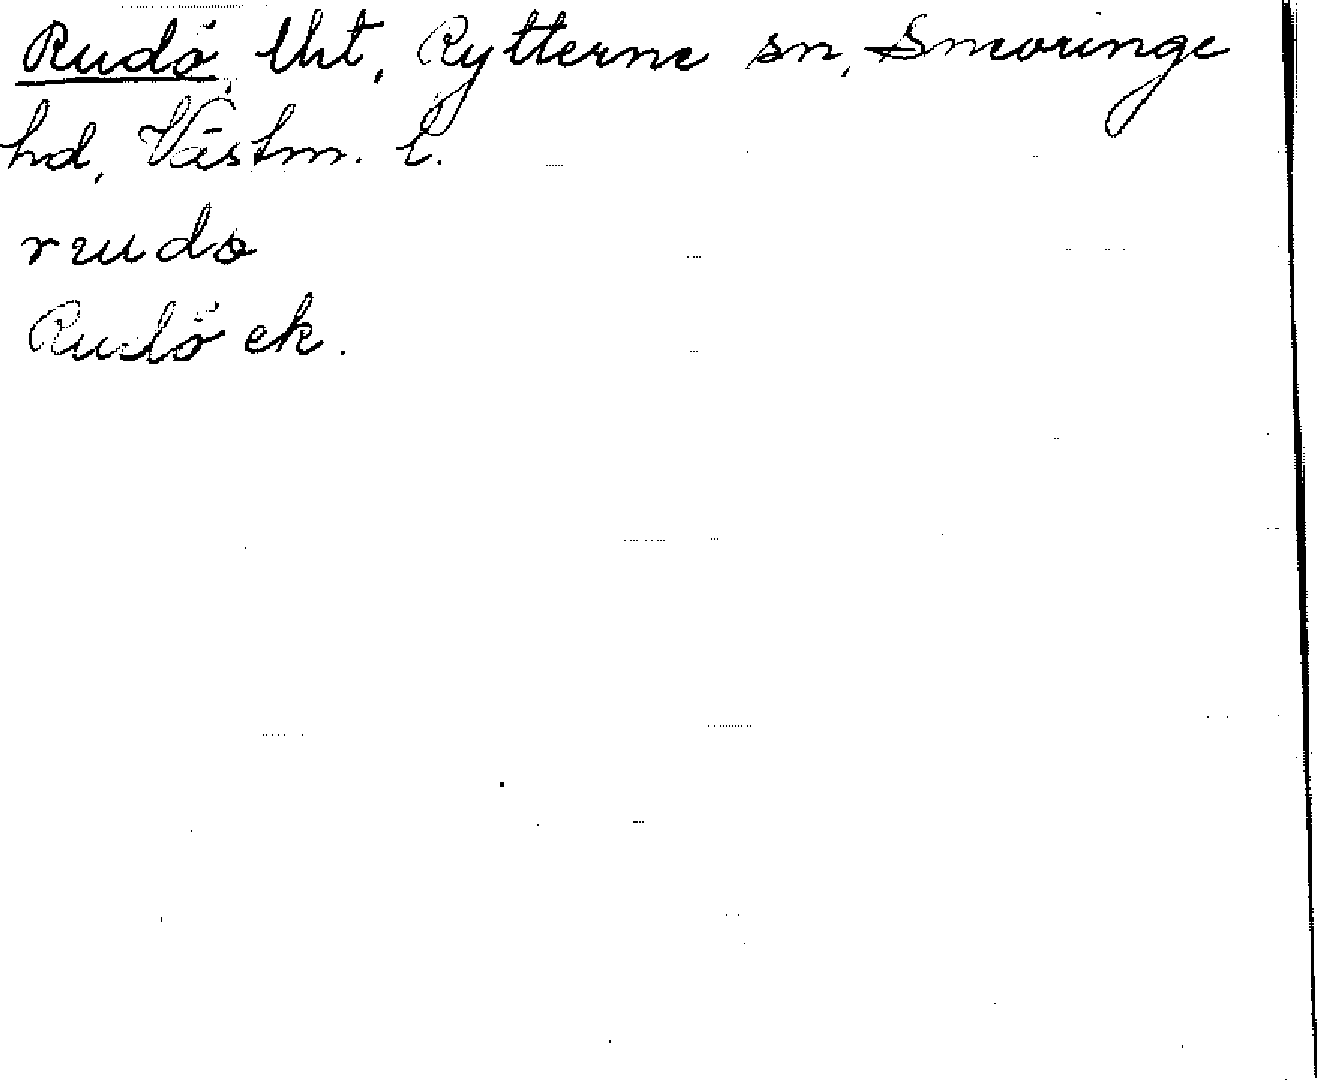 Rudö, lht, Rytterne sn, Snevringe
hd, Västm. l.
rudø
Rudö ek.